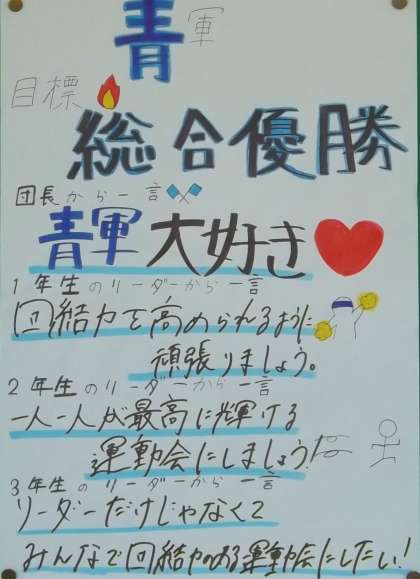 青軍
目標
総合優勝
団長から一言
青軍大好き
1年生のリーダーから一言
団結力を高められるように
頑張りましょう。
2年生のリーダーから一言
一人一人が最高に輝ける
運動会にしましょう!
3年生のリーダーから一言
リーダーだけじゃなくて
みんなで団結力のある運動会にしたい!